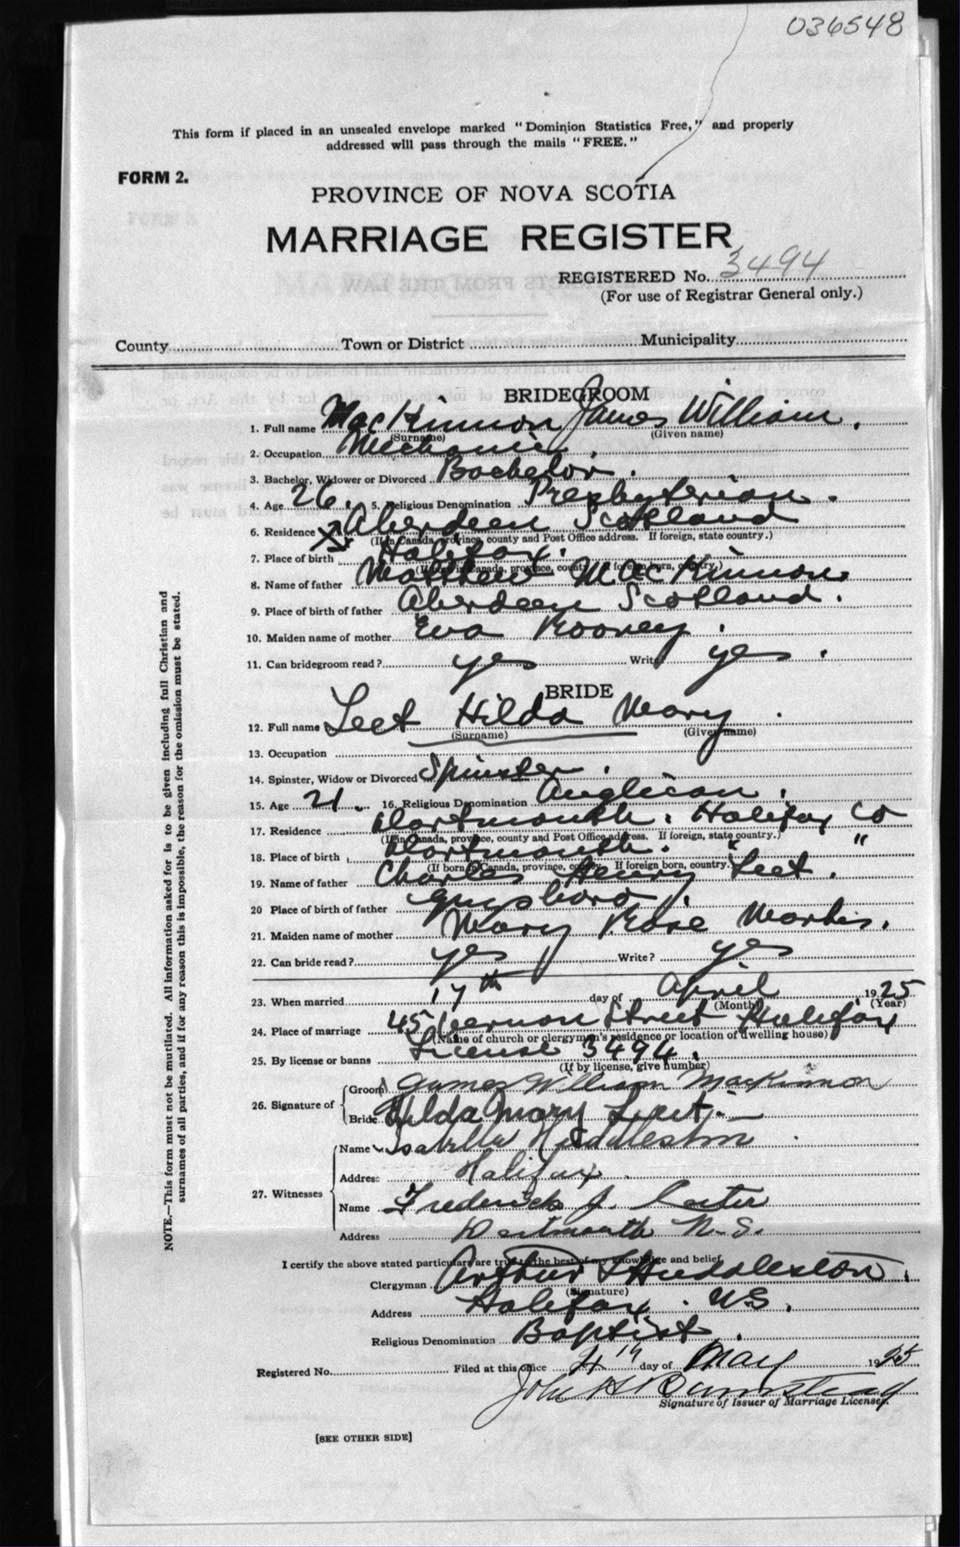 036548
This form if placed in an unsealed envelope marked "Dominion Statistics Free," and properly
addressed will pass through the mails "FREE."
FORM 2.
PROVINCE OF NOVA SCOTIA
MARRIAGE REGISTER
REGISTERED No. 3494
(For use of Registrar General only.)
County Town or District Municipality
BRIDEGROOM
1. Full name MacKinnon James William.
(Surname) (Given name)
2. Occupation Mechanic.
3. Bachelor, Widower or Divorced Bachelor.
4. Age 26. 5. Religious Denomination Presbyterian.
6. Residence Aberdeen Scotland
(If in Canada, province, county and Post Office address. If foreign, state country.)
7. Place of birth Halifax.
8. Name of father Matthew MacKinnon
9. Place of birth of father Aberdeen Scotland.
10. Maiden name of mother Eva Rooney.
11. Can bridegroom read? yes Write yes.
BRIDE
12. Full name Leet Hilda Mary.
(Surname) (Given name)
13. Occupation
14. Spinster, Widow or Divorced Spinster.
15. Age 21. 16. Religious Denomination Anglican.
17. Residence Dartmouth. Halifax Co
(If in Canada, province, county and Post Office address. If foreign, state country.)
18. Place of birth Dartmouth. " "
(If born in Canada, province, If foreign born, country.)
19. Name of father Charles Henry Leet.
20 Place of birth of father Guysboro.
21. Maiden name of mother Mary Rose
22. Can bride read? yes Write? yes
23. When married 17th day of April 1925
(Month) (Year)
24. Place of marriage 45 Vernon Street Halifax
(Name of church or clergyman's residence or location of dwelling house)
25. By license or banns License 3494.
(If by license, give number)
26. Signature of Groom James William MacKinnon
Bride Hilda Mary Leet.
27. Witnesses Name Isabella Huddleston
Address Halifax
Name Frederick J.
Address Dartmouth N.S.
I certify the above stated particulars are true to the best of my knowledge and belief.
Clergyman Arthur S Huddleston.
(Signature)
Address Halifax. N.S.
Religious Denomination Baptist.
Registered No. Filed at this office 4th day of May 1925
John H Barnstead
Signature of Issuer of Marriage Licenses.
[SEE OTHER SIDE]
NOTE.—This form must not be mutilated. All information asked for is to be given including full Christian and
surnames of all parties, and if for any reason this is impossible, the reason for the omission must be stated.